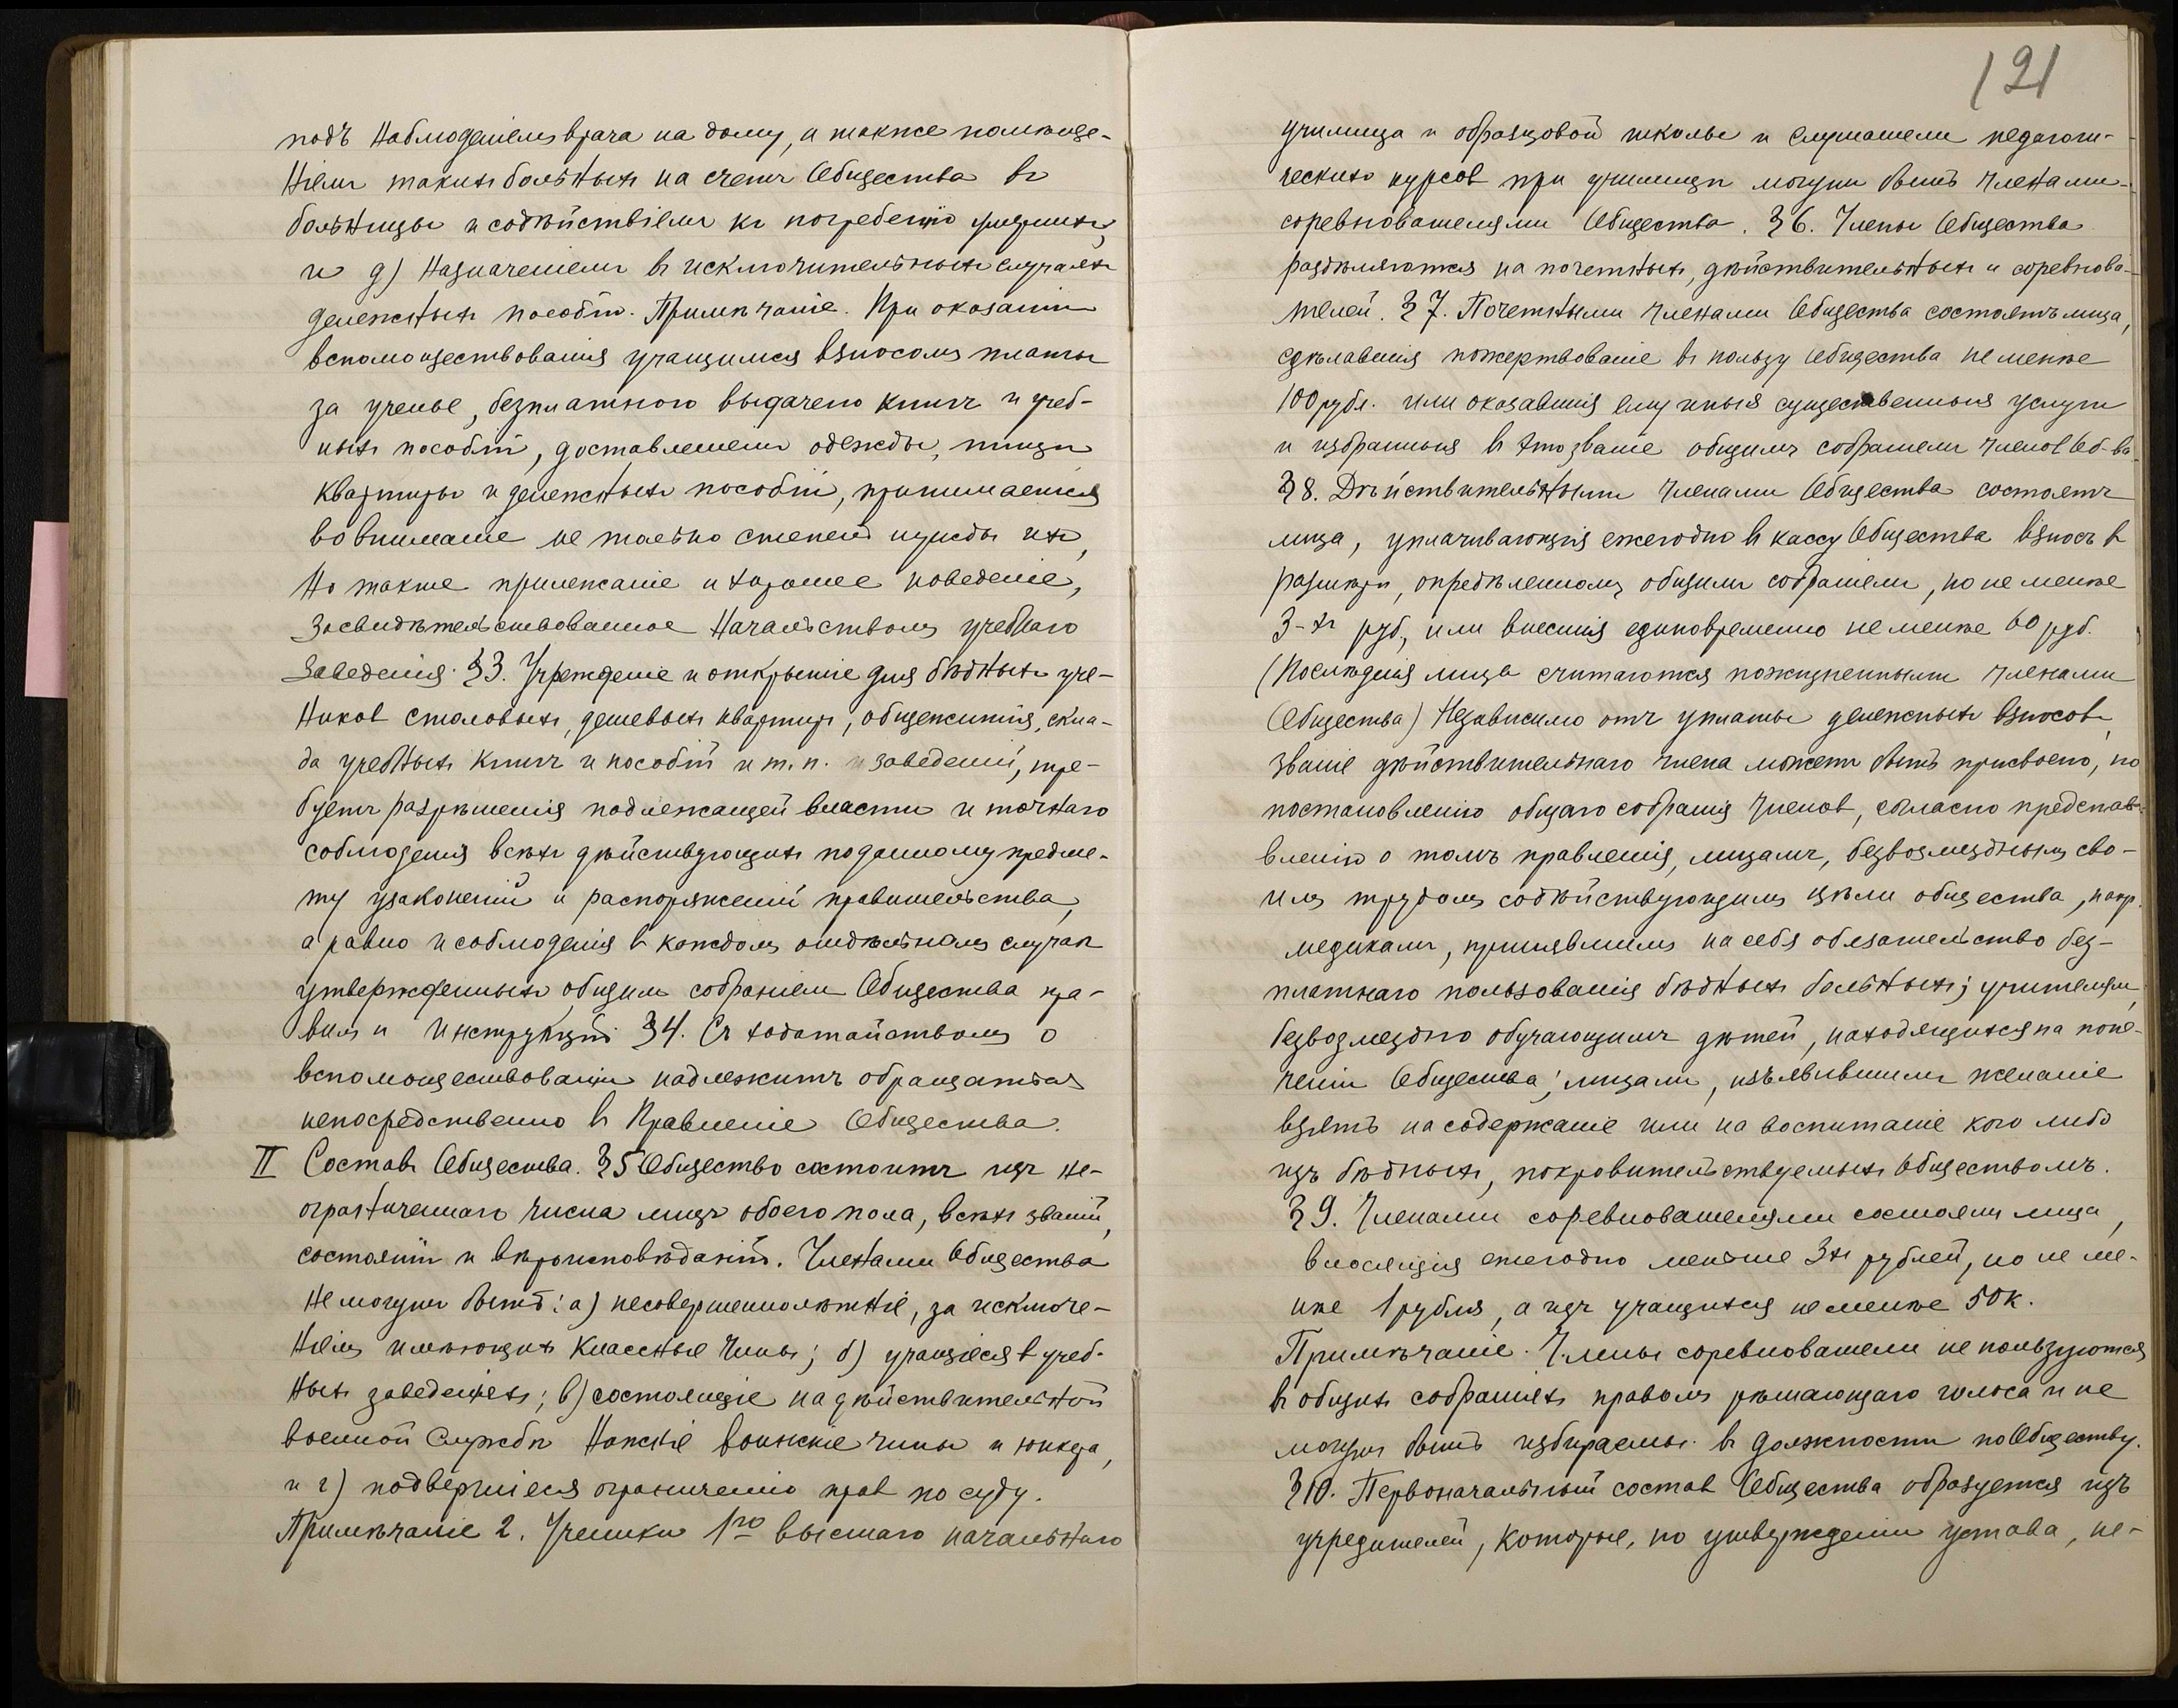 подъ наблюденіемъ врача на дому, а также помѣще-
ніемъ такихъ больныхъ на счетъ Общества въ
больницы и содѣйствіемъ къ погребенію умершихъ,
и д) назначеніемъ въ исключительныхъ случаяхъ
денежныхъ пособій. Примѣчаніе. При оказаніи
вспомоществованія учащимся взносомъ платы
за ученье, безплатною выдачею книгъ и учеб-
ныхъ пособій, доставленіемъ одежды, пищи
квартиры и денежныхъ пособій, принимается
во вниманіе не только степень нужды ихъ,
но также прилежаніе и хорошее поведеніе,
засвидѣтельствованное Начальствомъ учебнаго
Заведенія. §3. Учрежденіе и открытіе для бѣдныхъ уче-
никовъ столовыхъ, дешевыхъ квартиръ, общежитія, скла-
да учебныхъ книгъ и пособій и т. п. заведеній, тре-
буетъ разрѣшенія подлежащей власти и точнаго
соблюденія всѣхъ дѣйствующихъ по данному предме-
ту узаконеній и распоряженій правительства,
а равно и соблюденія въ каждомъ отдѣльномъ случаѣ
утвержденныхъ общимъ собраніемъ Общества пра-
вилъ и инструкцій §4. Съ ходатайствомъ о
вспомоществованіи надлежитъ обращаться
непосредственно въ Правленіе Общества.
II Составъ Общества. §5 Общество состоитъ изъ не-
ограниченнаго числа лицъ обоего пола, всѣхъ званій,
состояній и вѣроисповѣданій. Членами Общества
не могутъ быть: а) несовершеннолѣтніе, за исключе-
ніемъ имѣющихъ классные чины; б) учащіеся въ учеб-
ныхъ заведеніяхъ; в) состоящіе на дѣйствительной
военной службѣ нижніе воинскіе чины и юнкера,
и г) подвергшіеся ограниченію правъ по суду.
Примѣчаніе 2. Ученики 1го высшаго начальнаго
121
училища и образцовой школы и слушатели педагоги-
ческихъ курсовъ при училищѣ могутъ быть членами-
соревнователями Общества. §6. Члены Общества
раздѣляются на почетныхъ, дѣйствительныхъ и соревнова-
телей. §7. Почетными членами Общества состоятъ лица,
сдѣлавшія пожертвованіе въ пользу Общества не менѣе
100 рубл. или оказавшія ему иныя существенныя услуги
и избранныя въ это званіе общимъ собраніемъ членовъ Об-ва.
§8. Дѣйствительными членами Общества состоятъ
лица, уплачивающія ежегодно въ кассу Общества взносъ въ
размѣрѣ, опредѣленномъ общимъ собраніемъ, но не менѣе
3-хъ руб., или внесшія единовременно не менѣе 60 руб.
(Послѣднія лица считаются пожизненными членами
Общества) Независимо отъ уплаты денежныхъ взносовъ,
званіе дѣйствительнаго члена можетъ быть присвоено, по
постановленію общаго собранія членовъ, согласно представ-
вленію о томъ правленія, лицамъ, безвозмезднымъ сво-
имъ трудомъ содѣйствующимъ цѣли общества, напр.
медикамъ, принявшимъ на себя обязательство без-
платнаго пользованія бѣдныхъ больныхъ; учителямъ,
безвозмездно обучающимъ дѣтей, находящихся на попе-
ченіи Общества; лицамъ, изъявившимъ желаніе
взять на содержаніе или на воспитаніе кого либо
изъ бѣдныхъ, покровительствуемыхъ Обществомъ.
§9. Членами соревнователями состоятъ лица,
вносящія ежегодно меньше 3хъ рублей, но не ме-
нѣе 1 рубля, а изъ учащихся не менѣе 50 к.
Примѣчаніе. Члены соревнователи не пользуются
въ общихъ собраніяхъ правомъ рѣшающаго голоса и не
могутъ быть избираемы въ должности по Обществу.
§10. Первоначальный составъ Общества образуется изъ
учредителей, которые, по утвержденіи устава, не-